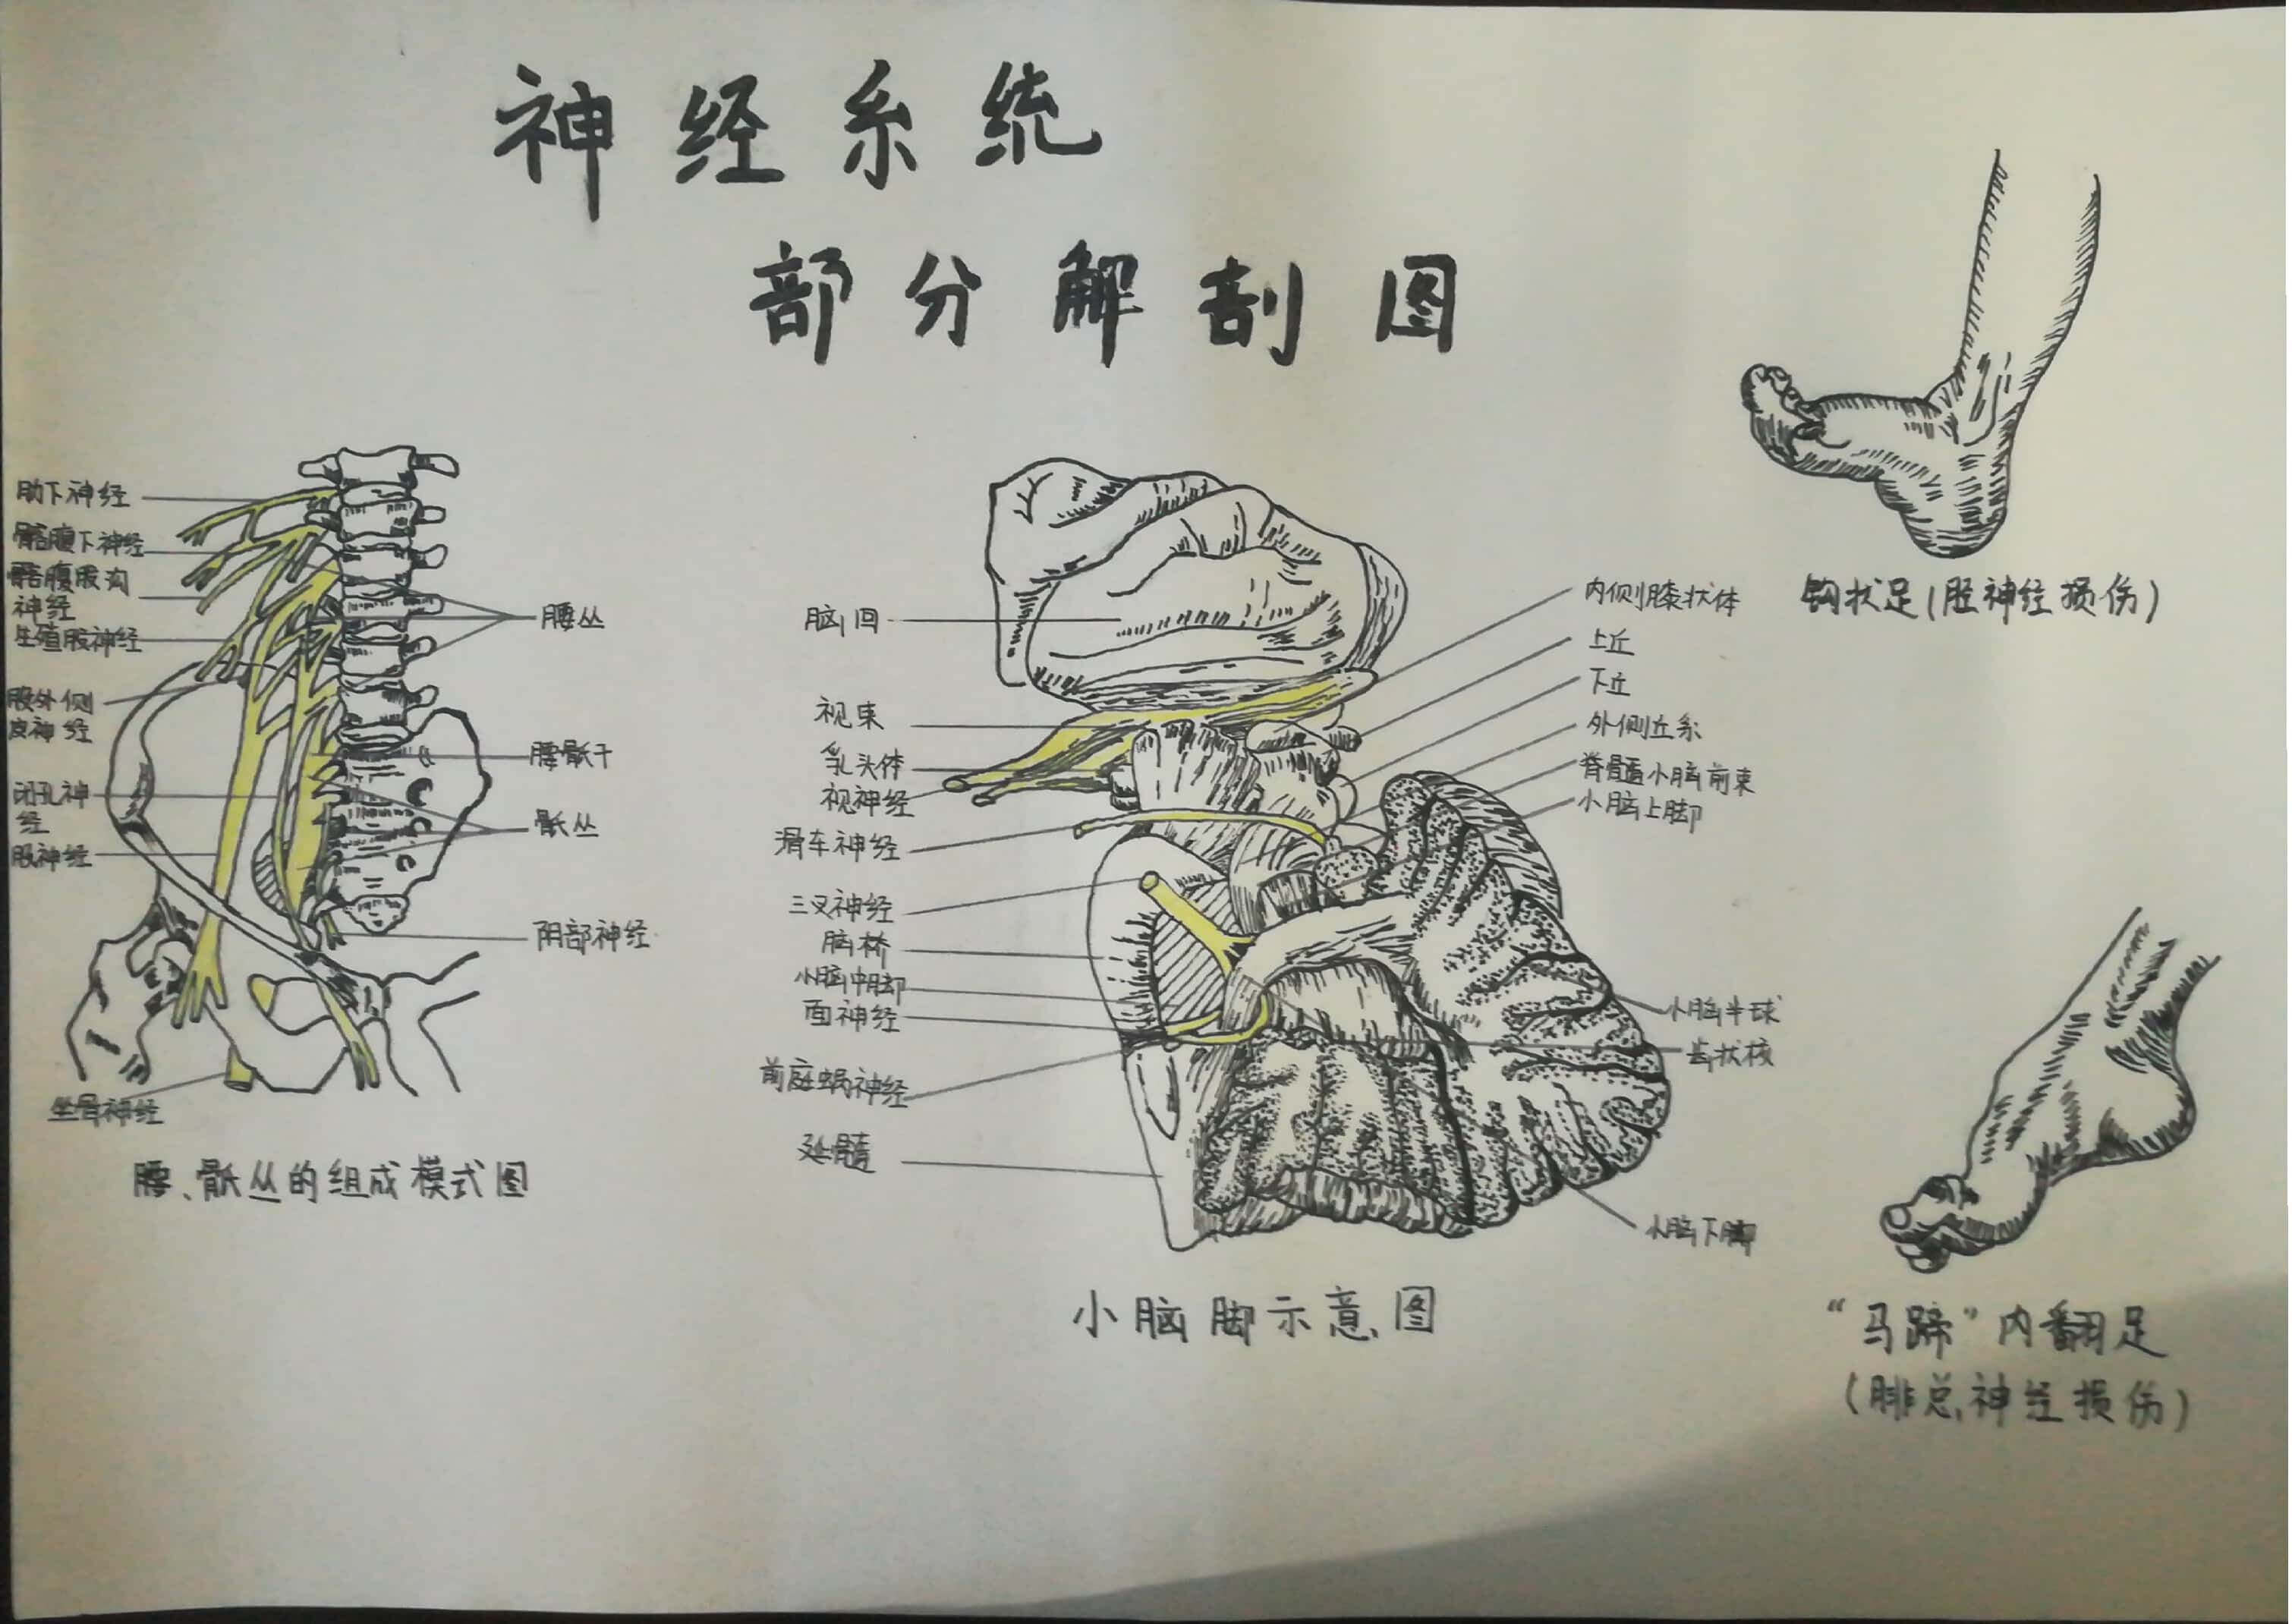 神经系统
部分解剖图
肋下神经
髂腹下神经
髂腹股沟
神经
生殖股神经
股外侧
皮神经
闭孔神
经
股神经
坐骨神经
腰丛
腰骶干
骶丛
阴部神经
腰、骶丛的组成模式图
脑回
视束
乳头体
视神经
滑车神经
三叉神经
脑桥
小脑中脚
面神经
前庭蜗神经
延髓
内侧膝状体
上丘
下丘
外侧丘系
脊髓小脑前束
小脑上脚
小脑半球
齿状核
小脑下脚
小脑脚示意图
钩状足(胫神经损伤)
“马蹄”内翻足
(腓总神经损伤)